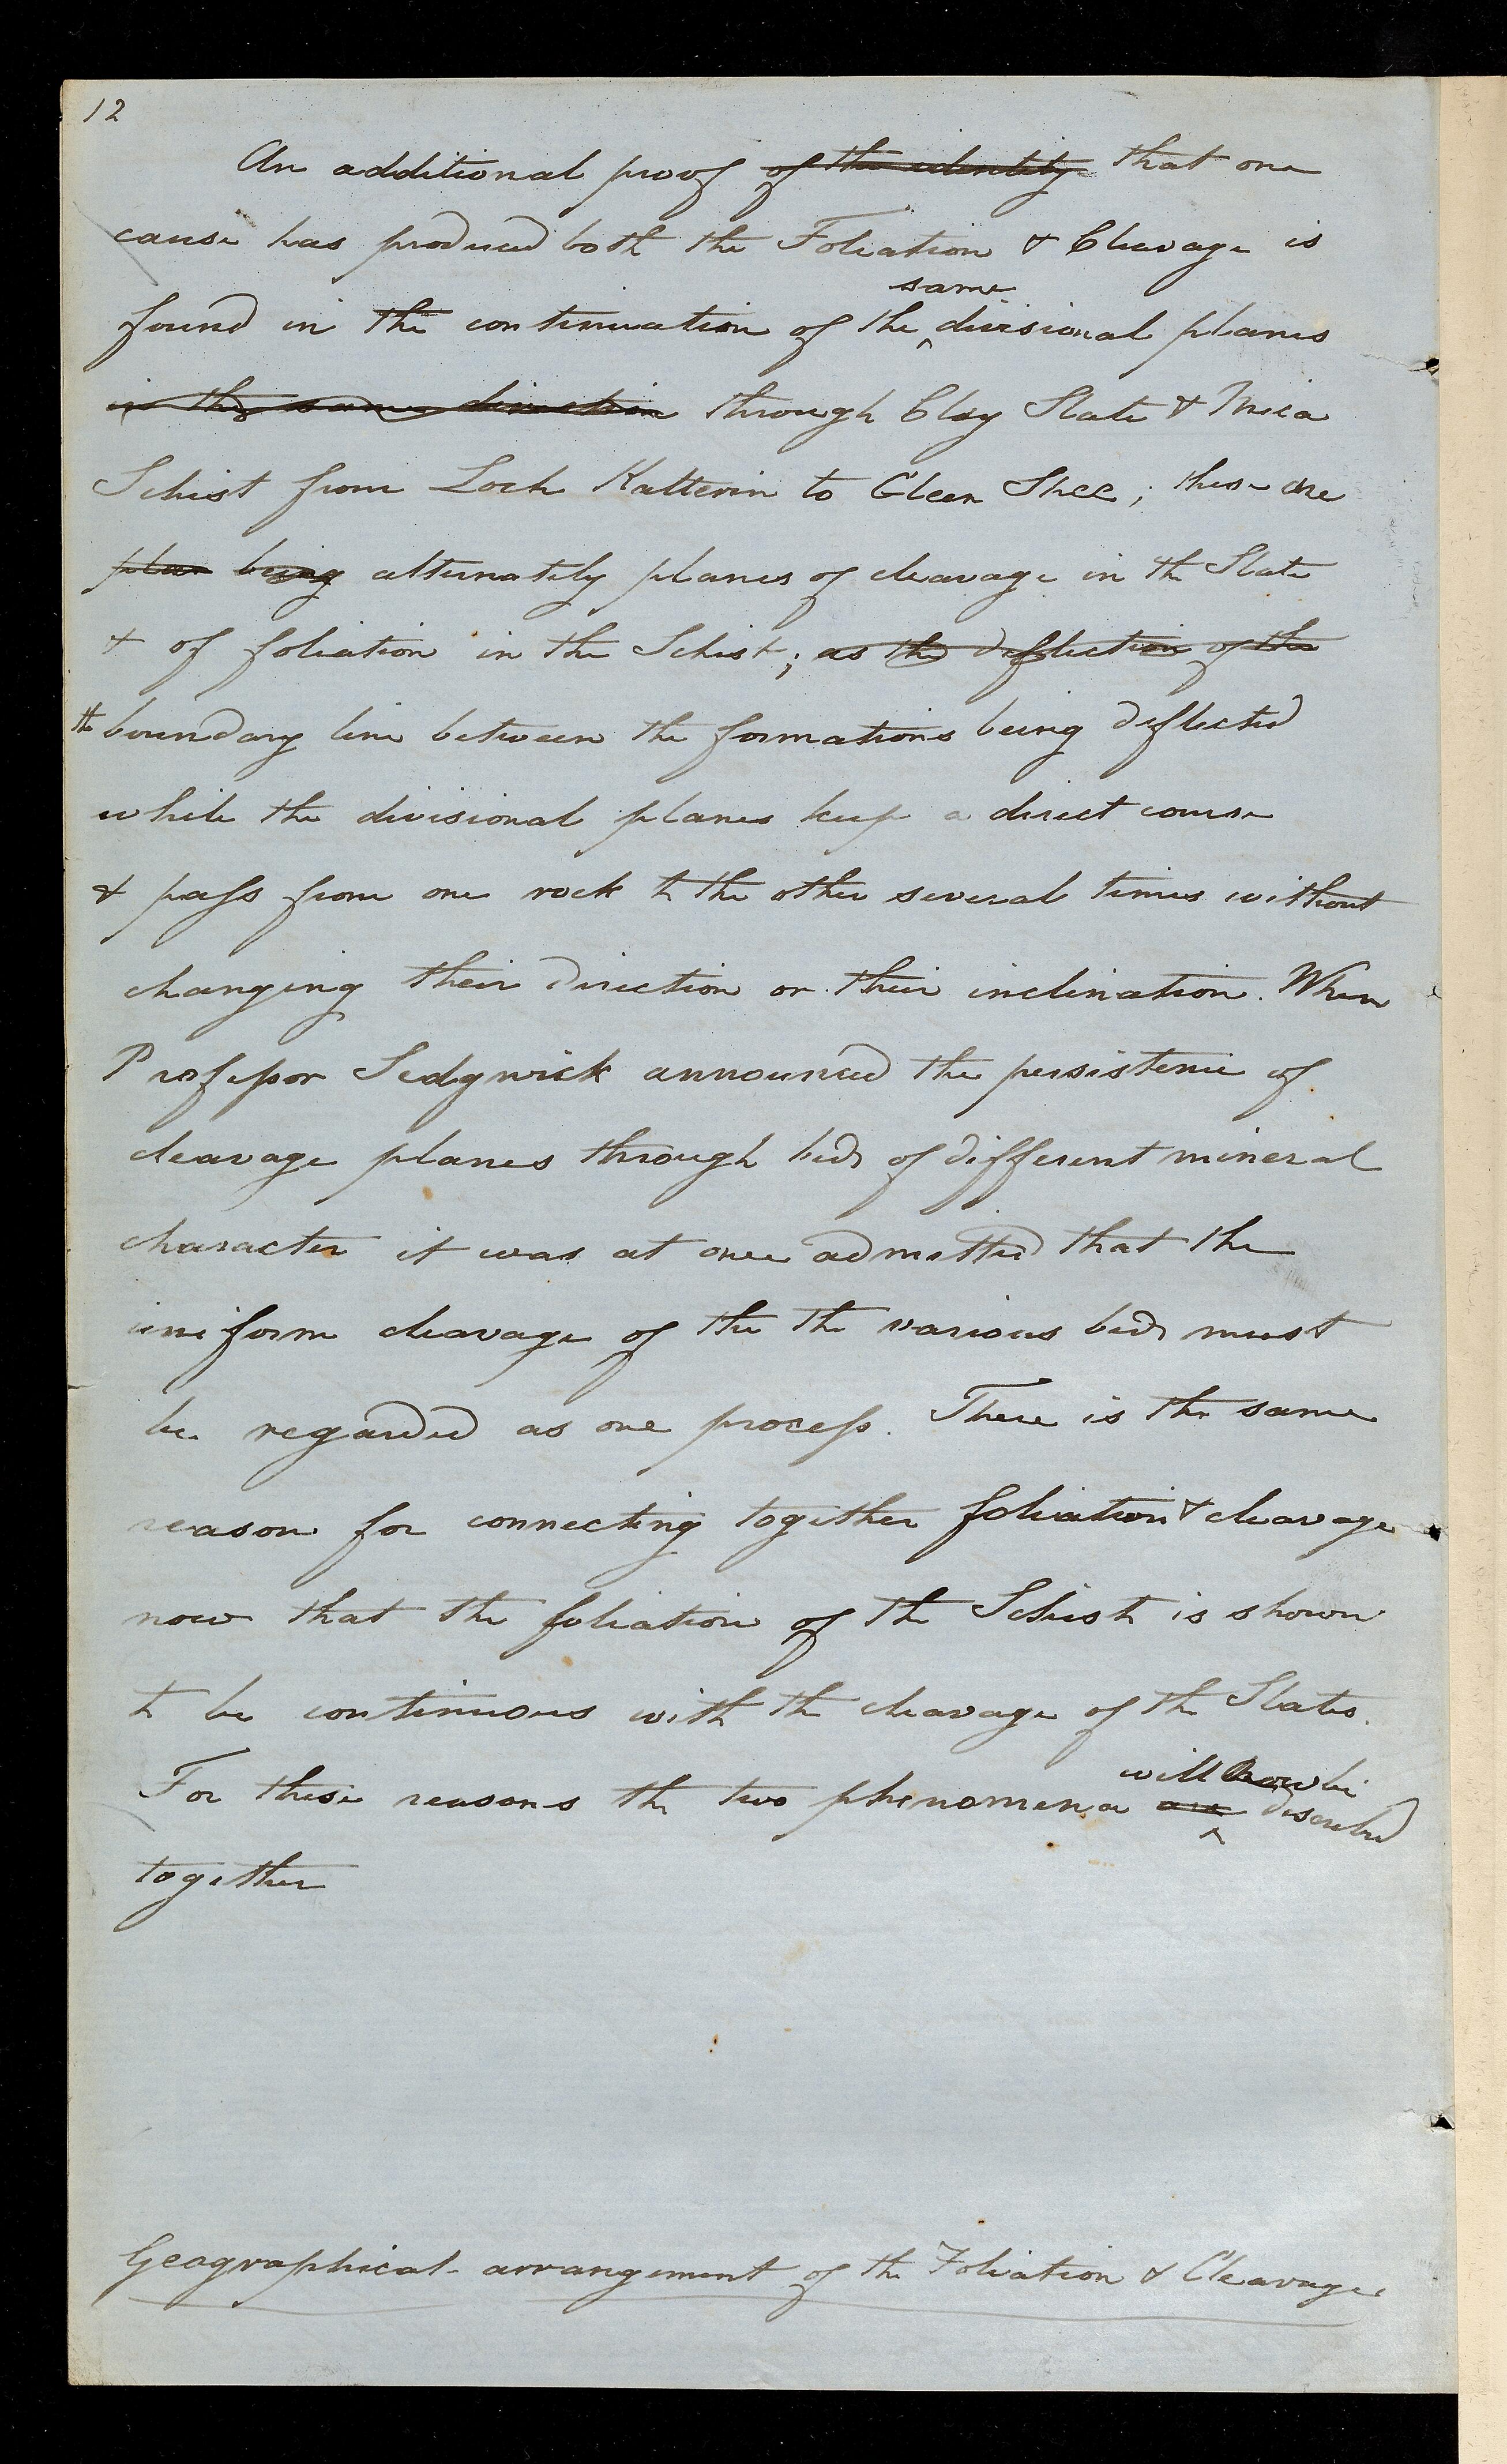 12
An additional proof of the identity that one
cause has produced both the Foliation & Cleavage is
same
found in the continuation of the ‸ divisional planes
in the same direction through Clay Slate & Mica
Schist from Loch Katterin to Gleen Shee; these are
plan being alternately planes of cleavage in the Slate
& of foliation in the Schist; as the deflection of the
the boundary line between the formations being deflected
while the divisional planes keep a direct course
& pass from one rock to the other several times without
changing their direction or their inclination. When
Professor Sedgwick announced the persistence of
cleavage planes through beds of different mineral
character it was at once admitted that the
uniform cleavage of the the various beds must
be regarded as one process. There is the same
reason for connecting together foliation & cleavage
now that the foliation of the Schist is shown
to be continuous with the cleavage of the Slates.
will now be
For these reasons the two phenomena are ‸ described
together
Geographical arrangement of the Foliation & Cleavage